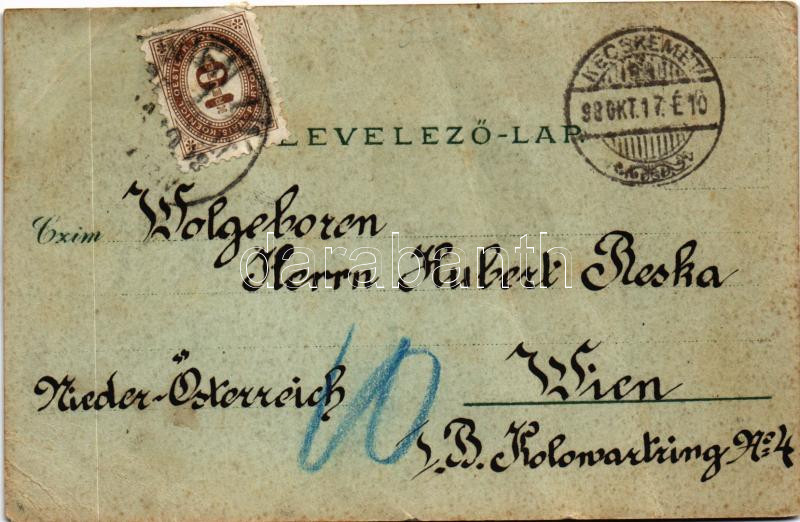 10
KECSKEMÉT
98 OKT. 17. É 10
LEVELEZŐ-LAP
Czim Wolgeboren
Herrn Hubert Reska
darabanth
10
Nieder-Österreich Wien
I. B. Kolowartring No 4